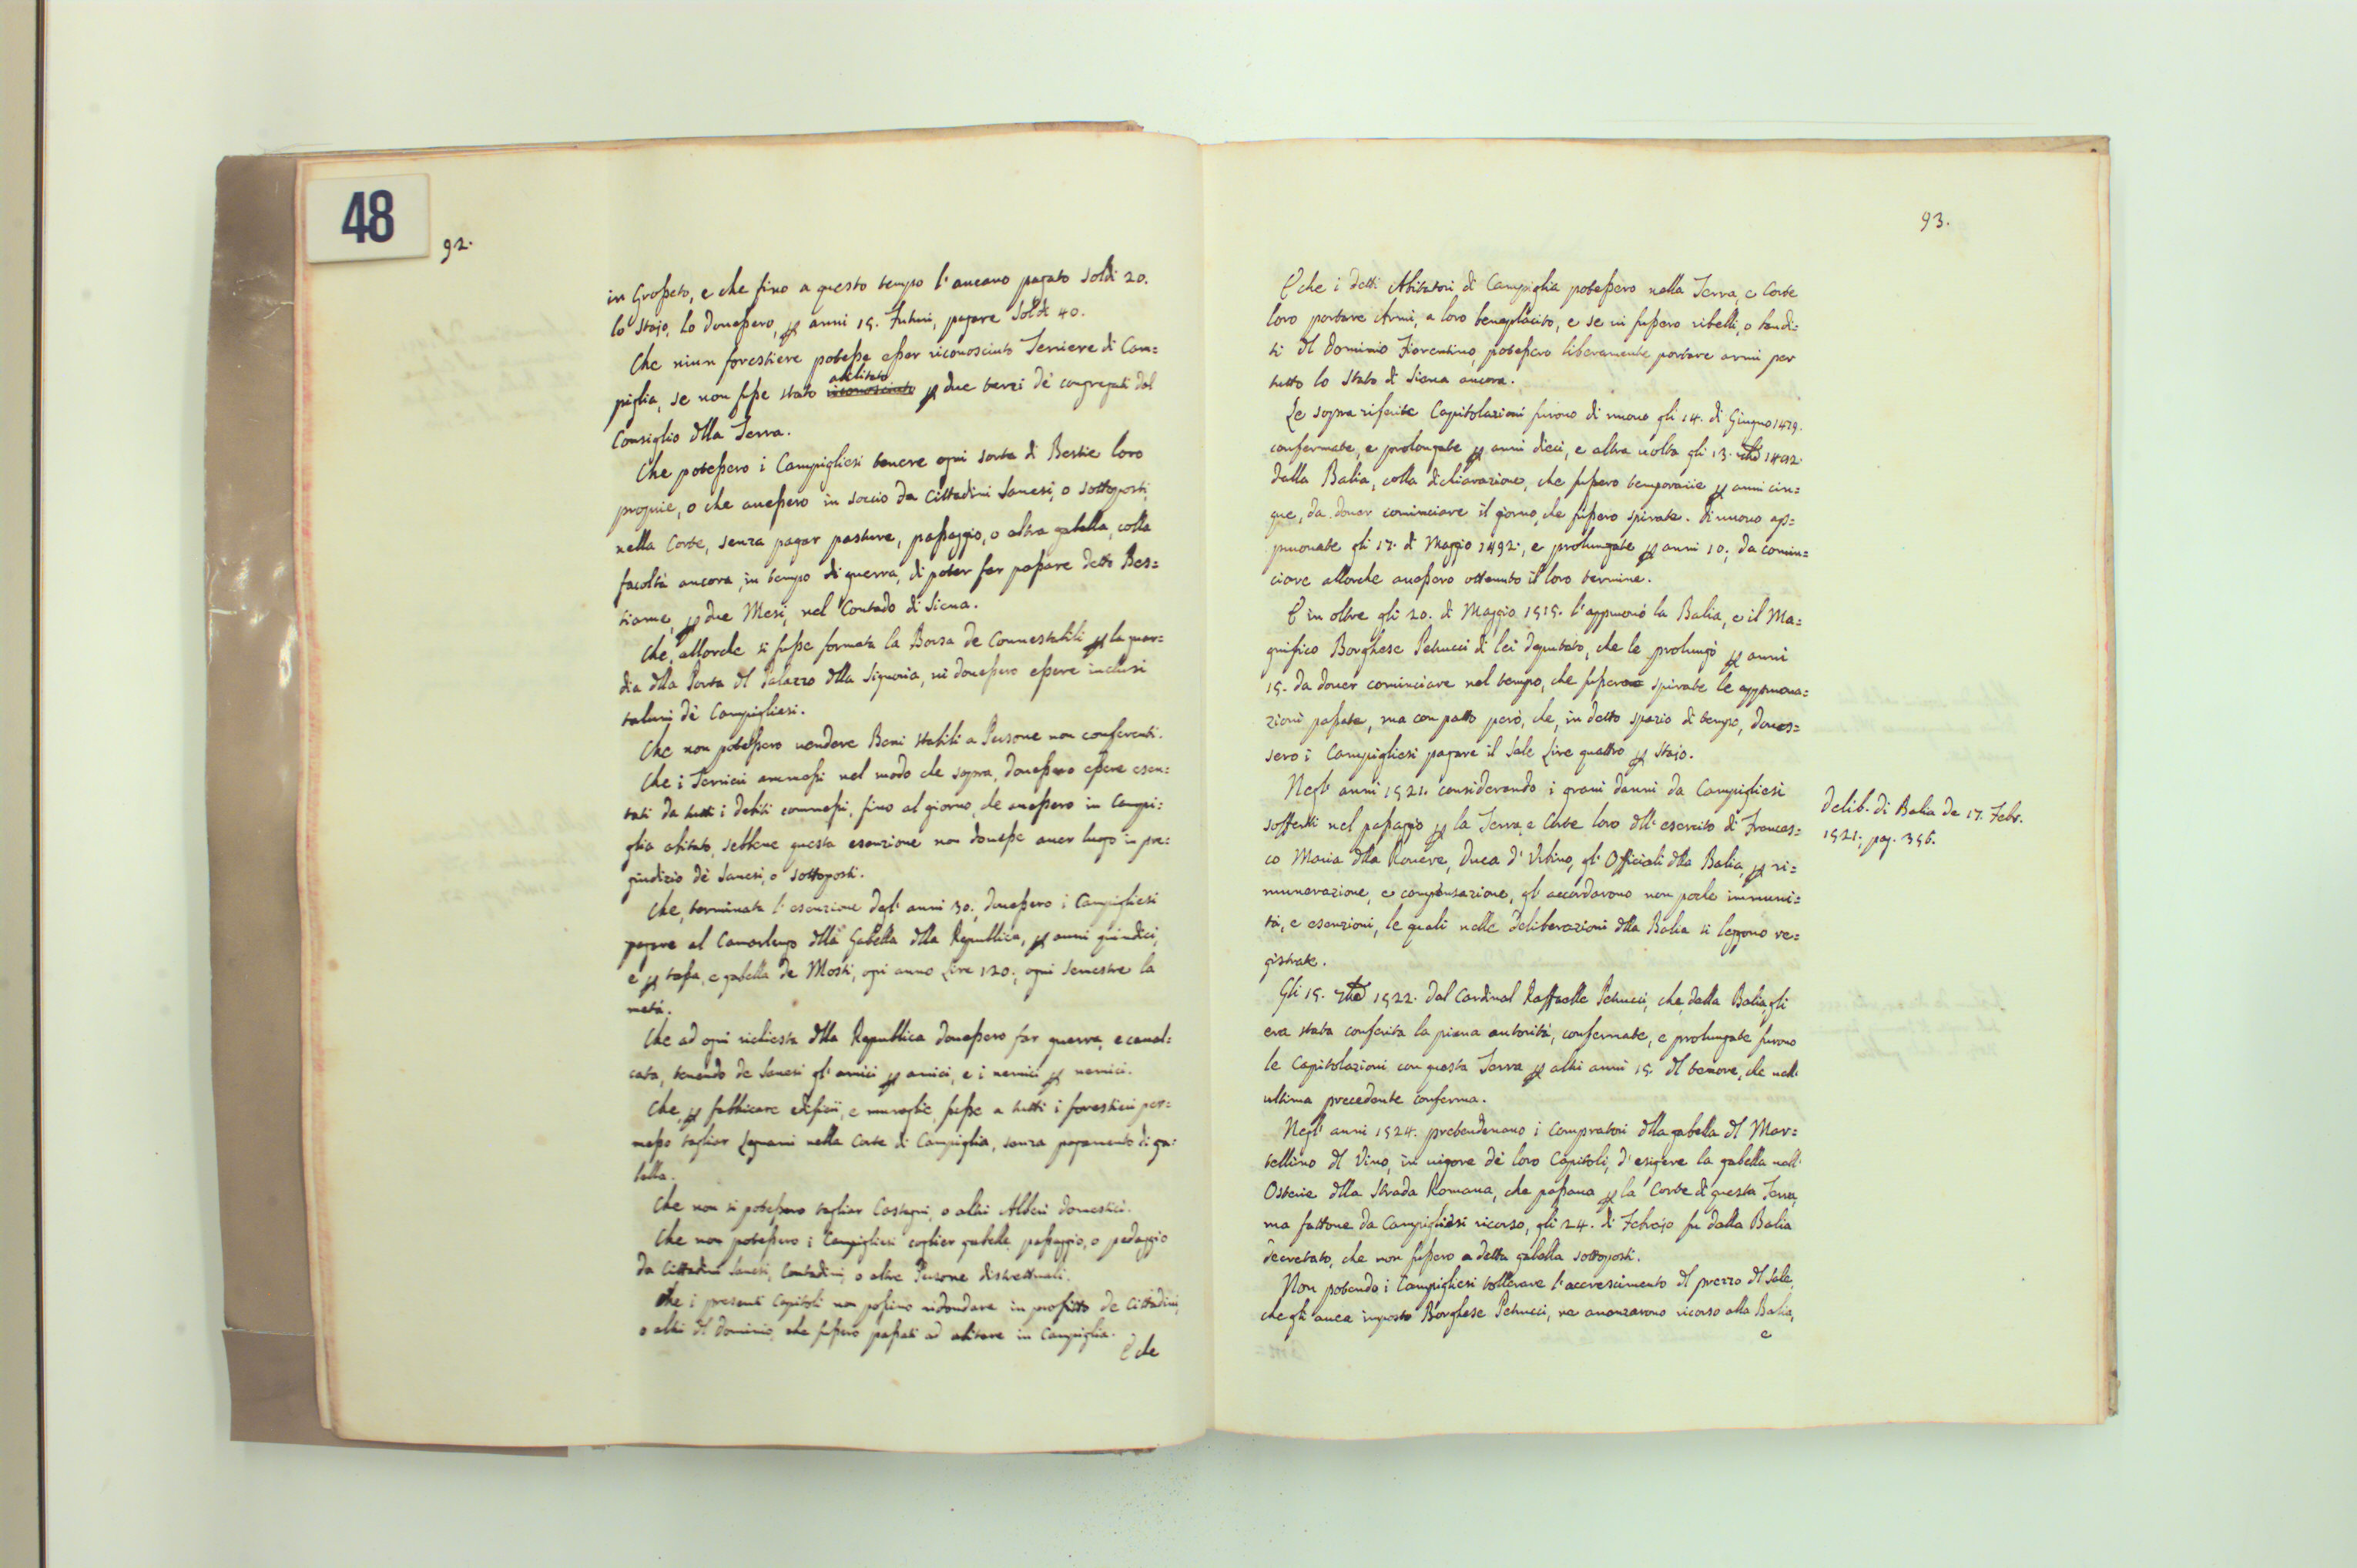 48
92.
in Grosseto, e che fino a questo tempo l'aueano pagato Soldi 20.
lo Stajo, lo douessero, per anni 15. Futuri, pagare Soldi 40.
Che niun forestiere potesse esser riconosciuto Terriere di Cam=
abilitato
piglia, se non fusse stato riconosciuto per due terzi dè congregati dal
Consiglio dlla Terra.
Che potessero i Campigliesi tenere ogni sorta di Bestie loro
proprie, o che auessero in soccio da Cittadini Sanesi, o sottoposti,
nella Corte, senza pagar pasture, passaggio, o altra gabella, colla
facoltà ancora, in tempo di guerra, di poter far passare detto Bes=
tiame, per due Mesi, nel Contado di Siena.
Che, allorche si fusse formata la Borsa de Connestabili per la guar=
dia dlla Porta dl Palazzo dlla Signoria, ui douessero essere inclusi
taluni dè Campigliesi.
Che non potessero uendere Beni stabili a Persone non conferenti.
Che i Terrieri ammessi nel modo che sopra, douessero essere esen=
tati da tutti i debiti commessi, fino al giorno, che auessero in Campi=
glia abitato, sebbene questa esenzione non douesse auer luogo in pre=
giudizio dè Sanesi, o sottoposti.
Che, terminata l'esenzione degl'anni 30., douessero i Campigliesi
pagare al Camarlengo dlla Gabella dlla Republica, per anni quindici,
e per tassa, e gabella de Mosti, ogni anno Lire 120., ogni Semestre la
metà.
Che ad ogni richiesta dlla Republica douessero far guerra, e caual=
cata, tenendo de Sanesi gl'amici per amici, e i nemici per nemici.
Che, per fabbricare edificii, e muraglie, fusse a tutti i forestieri per=
messo tagliar Legnami nella Corte di Campiglia, senza pagamento di ga=
bella.
Che non si potessero tagliar Castagni, o altri Alberi domestici.
Che non potessero i Campigliesi coglier gabelle, passaggio, o pedaggio
da Cittadini Sanesi, Contadini, o altre Persone distrettuali.
Che i presenti Capitoli non possino ridondare in profitto de Cittadini,
o altri dl dominio, che fussero passati ad abitare in Campiglia.
E che
93.
E che i detti Abitatori di Campiglia potessero nella Terra, e Corte
loro portare Armi, a loro beneplacito, e se ui fussero ribelli, o bandi=
ti dl Dominio Fiorentino, potessero liberamente portare armi per
tutto lo Stato di Siena ancora.
Le sopra riferite Capitolazioni furono di nuouo gli 14. di Giugno 1479.
confermate, e prolongate per anni dieci, e altra uolta gli 13.
dalla Balia, colla dichiarazione, che fussero temporarie per anni cin=
que, da douer cominciare il giorno, che fussero spirate. Di nuouo ap=
prouate gli 17. di Maggio 1492., e prolungate per anni 10., da comin=
ciare allorche auessero ottenuto il loro termine.
E in oltre gli 20. di Maggio 1515. l'approuò la Balia, e il Ma=
gnifico Borghese Petrucci di lei deputato, che le prolungò per anni
15. da douer cominciare nel tempo, che fussero spirate le approua=
zioni passate, ma con patto però, che, in detto spazio di tempo, doues=
sero i Campigliesi pagare il Sale Lire quattro per Stajo.
Negl'anni 1521. considerando i graui danni da Campigliesi
sofferti nel passaggio per la Terra, e Corte loro dll'esercito di Frances=
co Maria dlla Rouere, Duca d'Urbino, gl'Officiali dlla Balia, per ri=
munerazione, e compensazione, gl'accordarono non poche immuni=
tà, e esenzioni, le quali nelle Deliberazioni dlla Balia si leggono re=
gistrate.
Delib. di Balia de 17. Febr.
1521; pag. 356.
Gli 15. 1522. dal Cardinal Raffaelle Petrucci, che, dalla Balia, gli
era stata conferita la piena autorità, confermate, e prolungate furono
le Capitolazioni con questa Terra per altri anni 15. dl tenore, che nell'
ultima precedente conferma.
Negl'anni 1524. pretendeuano i Compratori dlla gabella dl Mar=
tellino dl Vino, in uigore dè loro Capitoli, d'esigere la gabella nell'
Osterie dlla Strada Romana, che passaua per la Corte di questa Terra,
ma fattone da Campigliesi ricorso, gli 24. di Febrajo fu dalla Balia
decretato, che non fussero a detta gabella sottoposti.
Non potendo i Campigliesi tollerare l'accrescimento dl prezzo dl Sale,
che gli auea imposto Borghese Petrucci, ne auanzarono ricorso alla Balia,
e